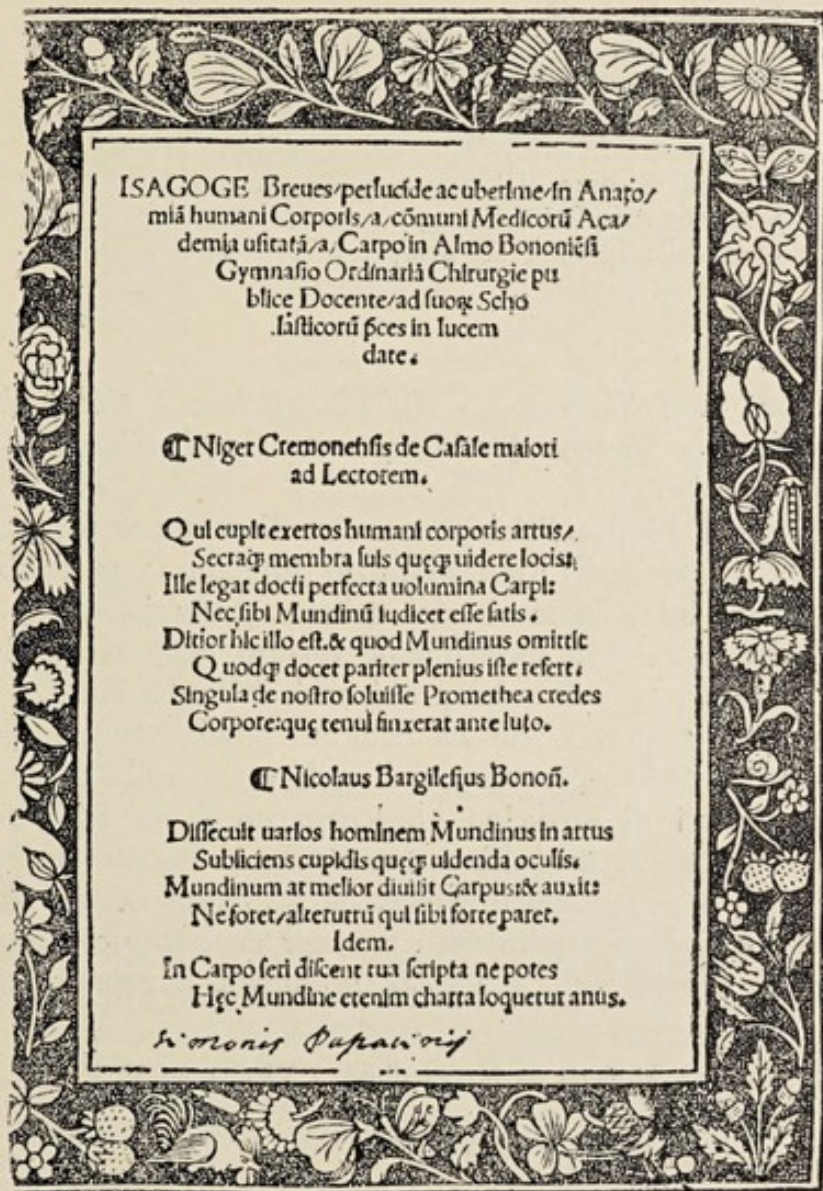 ISAGOGE Breues/perlucide ac uberime/in Anato/
miã humani Corporis/a/cõmuni Medicorũ Aca/
demia usitatã/a/Carpo in Almo Bononiẽsi
Gymnasio Ordinariã Chirurgie pu
blice Docente/ad suoꝝ Scho
lasticorũ p̃ces in lucem
date.
⸿ Niger Cremonensis de Casale maiori
ad Lectorem.
Qui cupit exertos humani corporis artus/
Sectaqꝫ membra suis quęqꝫ uidere locis:
Ille legat docti perfecta uolumina Carpi:
Nec sibi Mundinũ iudicet esse satis.
Ditior hic illo est.& quod Mundinus omittit
Quodqꝫ docet pariter plenius iste refert.
Singula de nostro soluisse Promethea credes
Corpore:quę tenui finxerat ante luto.
⸿ Nicolaus Bargilesius Bonoñ.
Dissecuit uarios hominem Mundinus in artus
Subiiciens cupidis quęqꝫ uidenda oculis.
Mundinum at melior diuisit Carpus:& auxit:
Ne foret/alterutrũ qui sibi forte paret.
Idem.
In Carpo seri discent tua scripta nepotes
Hęc Mundine etenim charta loquetur anus.
Simonis